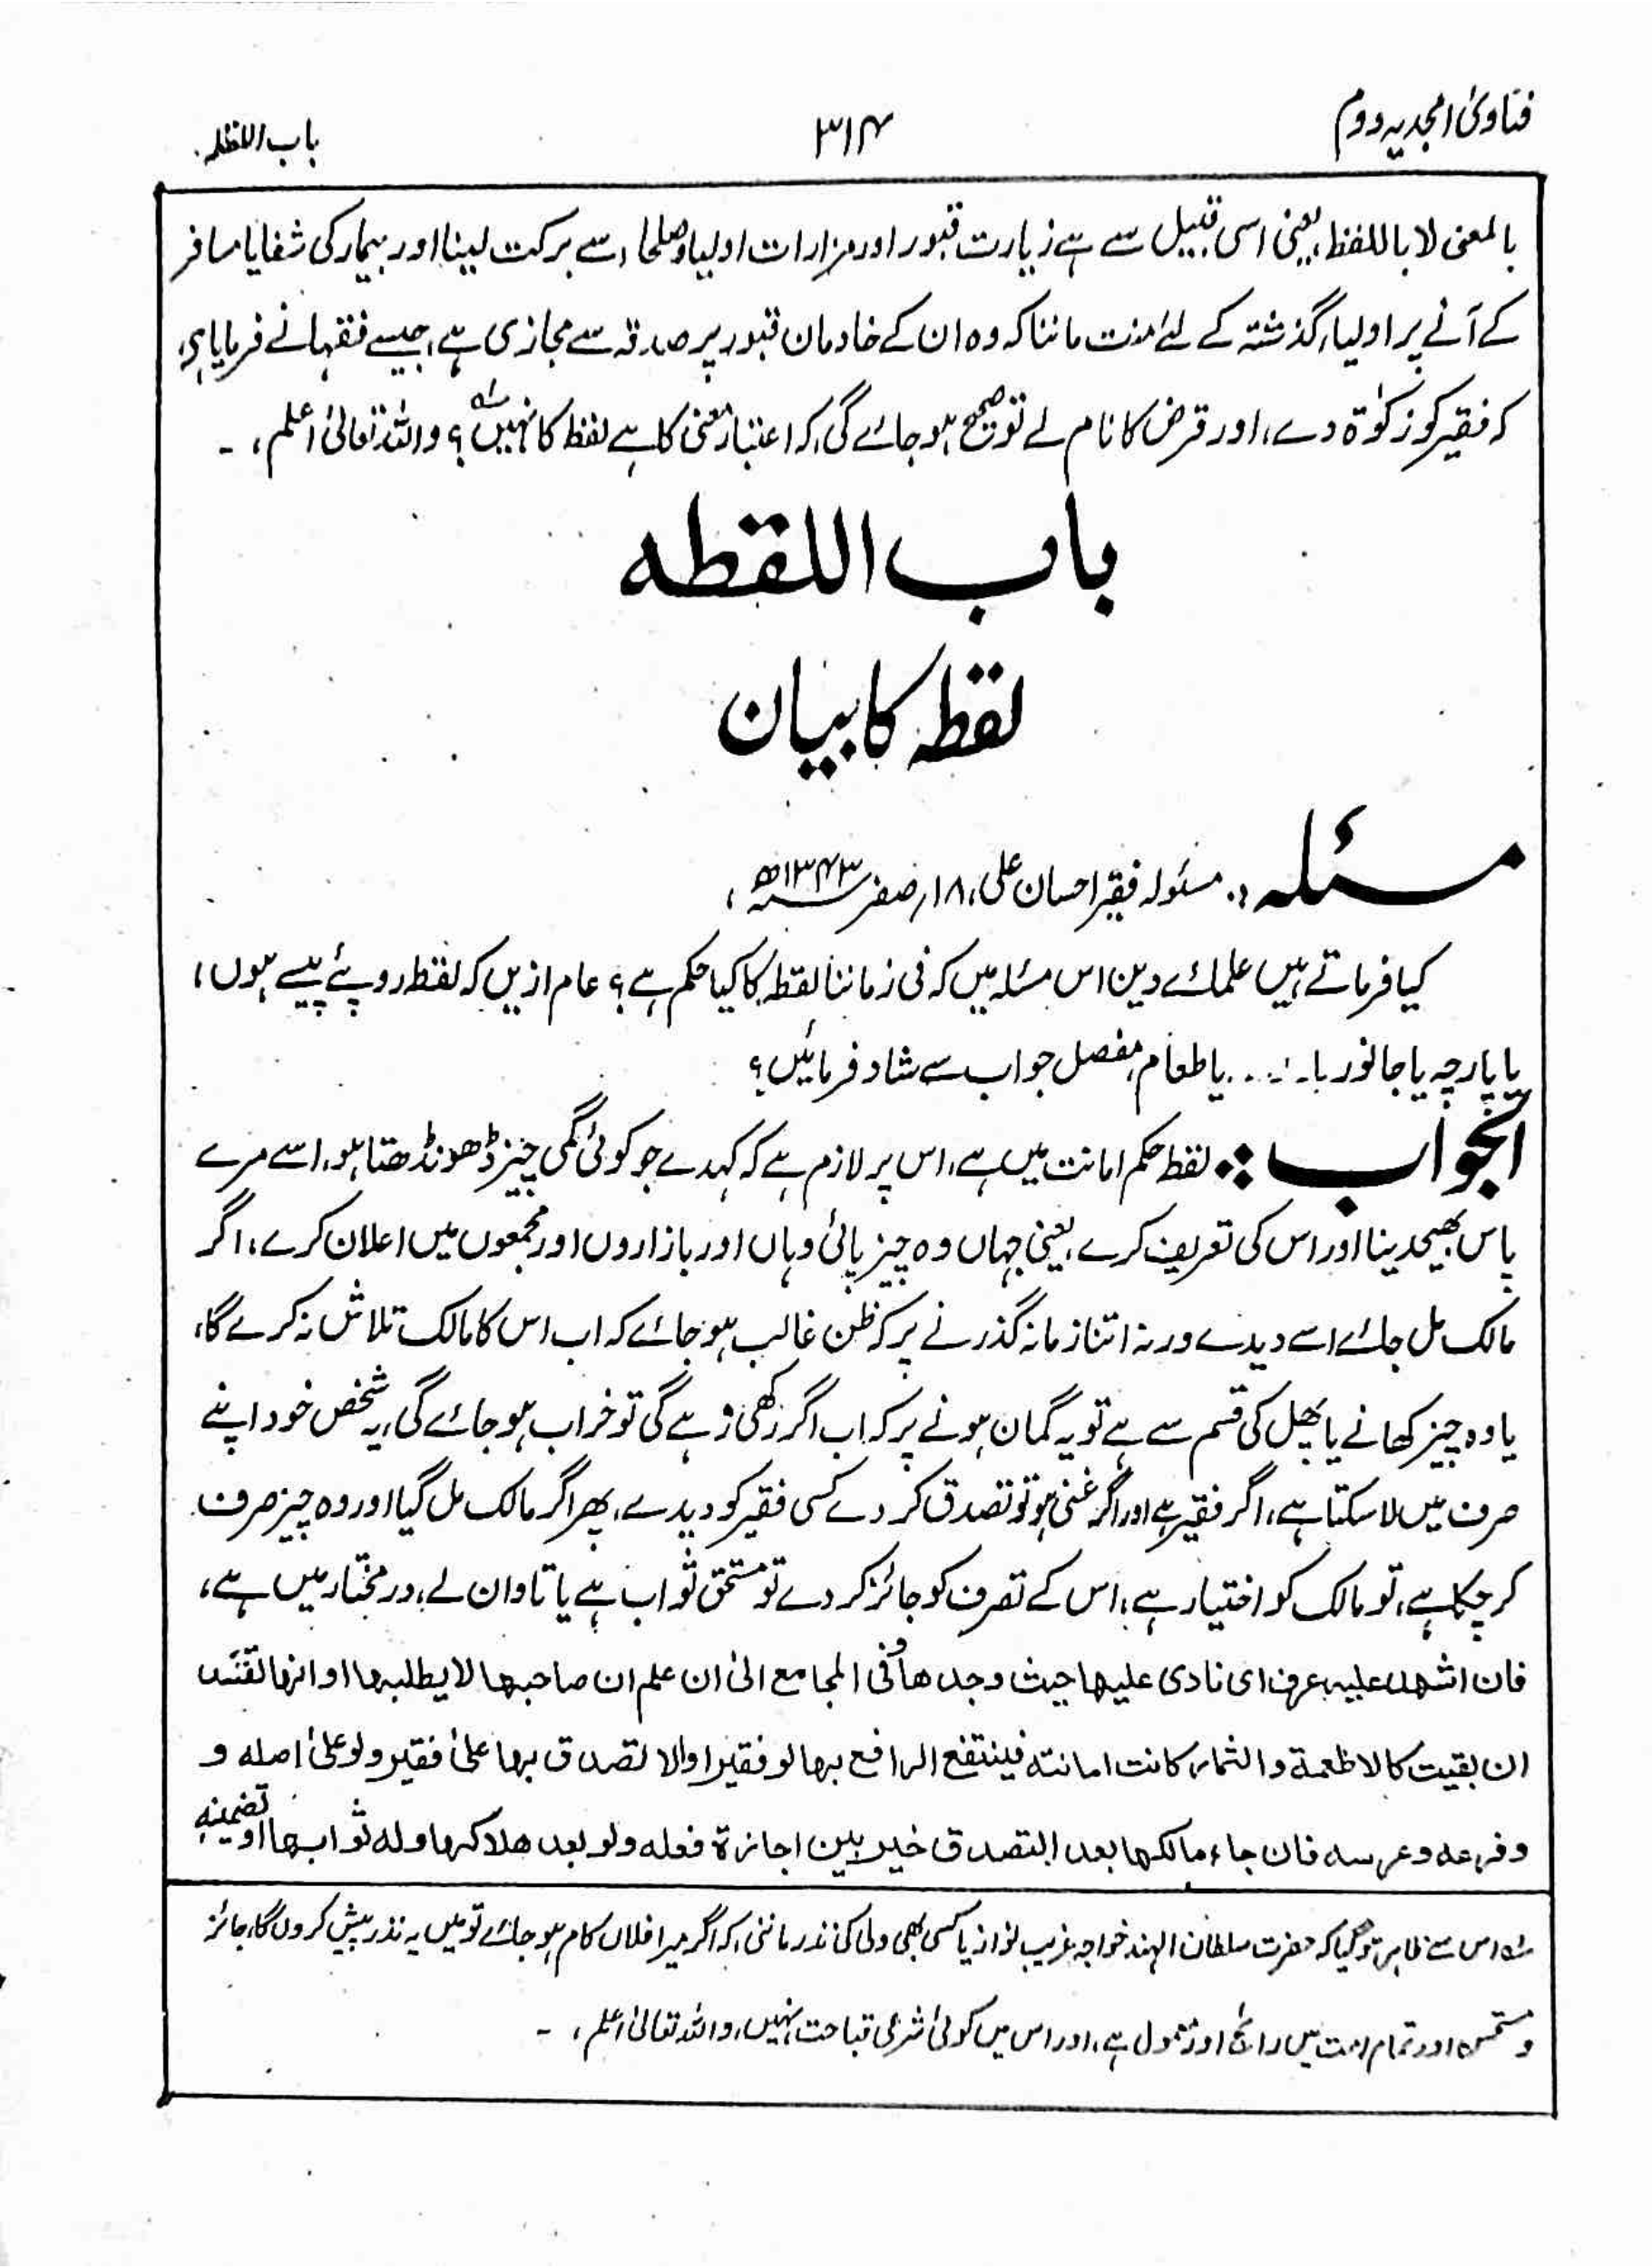 فتاویٰ امجدیہ دوم
۳۱۴
باب اللقطہ
بالمعنی لا باللفظ، یعنی اسی قبیل سے ہے زیارت قبور اور مزارات اولیا وصلحاء سے برکت لینا اور بیمار کی شفا یا مسافر
کے آنے پر اولیاء گذشتہ کے لئے منت ماننا کہ وہ ان کے خادمان قبور پر صدقہ سے مجازی ہے، جیسے فقہا نے فرمایا ہے،
کہ فقیر کو زکوٰۃ دے، اور قرض کا نام لے تو صحیح ہو جائے گی، کہ اعتبار معنی کا ہے لفظ کا نہیں لہ؟ واللہ تعالیٰ اعلم، ۔
باب اللقطه
لقطہ کا بیان
مسئلہ :۔ مسئولہ فقیر احسان علی، ۱۸ر صفر ۱۳۴۳ھ،
کیا فرماتے ہیں علمائے دین اس مسئلہ میں کہ فی زماننا لقطہ کا کیا حکم ہے؟ عام ازیں کہ لقطہ روپئے پیسے ہوں،
یا پارچہ یا جانور یا۔۔۔۔ یا طعام، مفصل جواب سے شاد فرمائیں؟
الجواب :۔ لقطہ حکم امانت میں ہے، اس پر لازم ہے کہ کہدے جو کوئی گمی چیز ڈھونڈھتا ہو، اسے مرے
پاس بھیجدینا اور اس کی تعریف کرے، یعنی جہاں وہ چیز پائی وہاں اور بازاروں اور مجمعوں میں اعلان کرے، اگر
مالک مل جائے اسے دیدے ورنہ اتنا زمانہ گذرنے پر کہ ظن غالب ہو جائے کہ اب اس کا مالک تلاش نہ کرے گا،
یا وہ چیز کھانے یا پھل کی قسم سے ہے تو یہ گمان ہونے پر کہ اب اگر رکھی رہے گی تو خراب ہو جائے گی، یہ شخص خود اپنے
صرف میں لا سکتا ہے، اگر فقیر ہے اور اگر غنی ہو تو تصدق کر دے کسی فقیر کو دیدے، پھر اگر مالک مل گیا اور وہ چیز صرف
کر چکا ہے، تو مالک کو اختیار ہے، اس کے تصرف کو جائز کر دے تو مستحق ثواب ہے یا تاوان لے، در مختار میں ہے،
فان اشهد علیہ عرف ای نادی علیها حیث وجدها فی المجامع الیٰ ان علم ان صاحبها لا یطلبها او انها تفسد
ان بقیت کالاطعمة والثمار کانت امانته فینتفع الرافع بها لو فقیرا والا تصدق بها علیٰ فقیر ولو علیٰ اصله و
وفرعه وعرسه فان جاء مالکها بعد التصدق خیر بین اجازة فعله ولو بعد هلاکها وله ثوابها او تضمینه
لہ اس سے ظاہر ہو گیا کہ حضرت سلطان الہند خواجہ غریب نواز یا کسی بھی ولی کی نذر ماننی، کہ اگر میرا فلاں کام ہو جائے تو میں یہ نذر پیش کروں گا، جائز
و مستحسن اور تمام امت میں رائج اور معمول ہے، اور اس میں کوئی شرعی قباحت نہیں، واللہ تعالیٰ اعلم، ۔